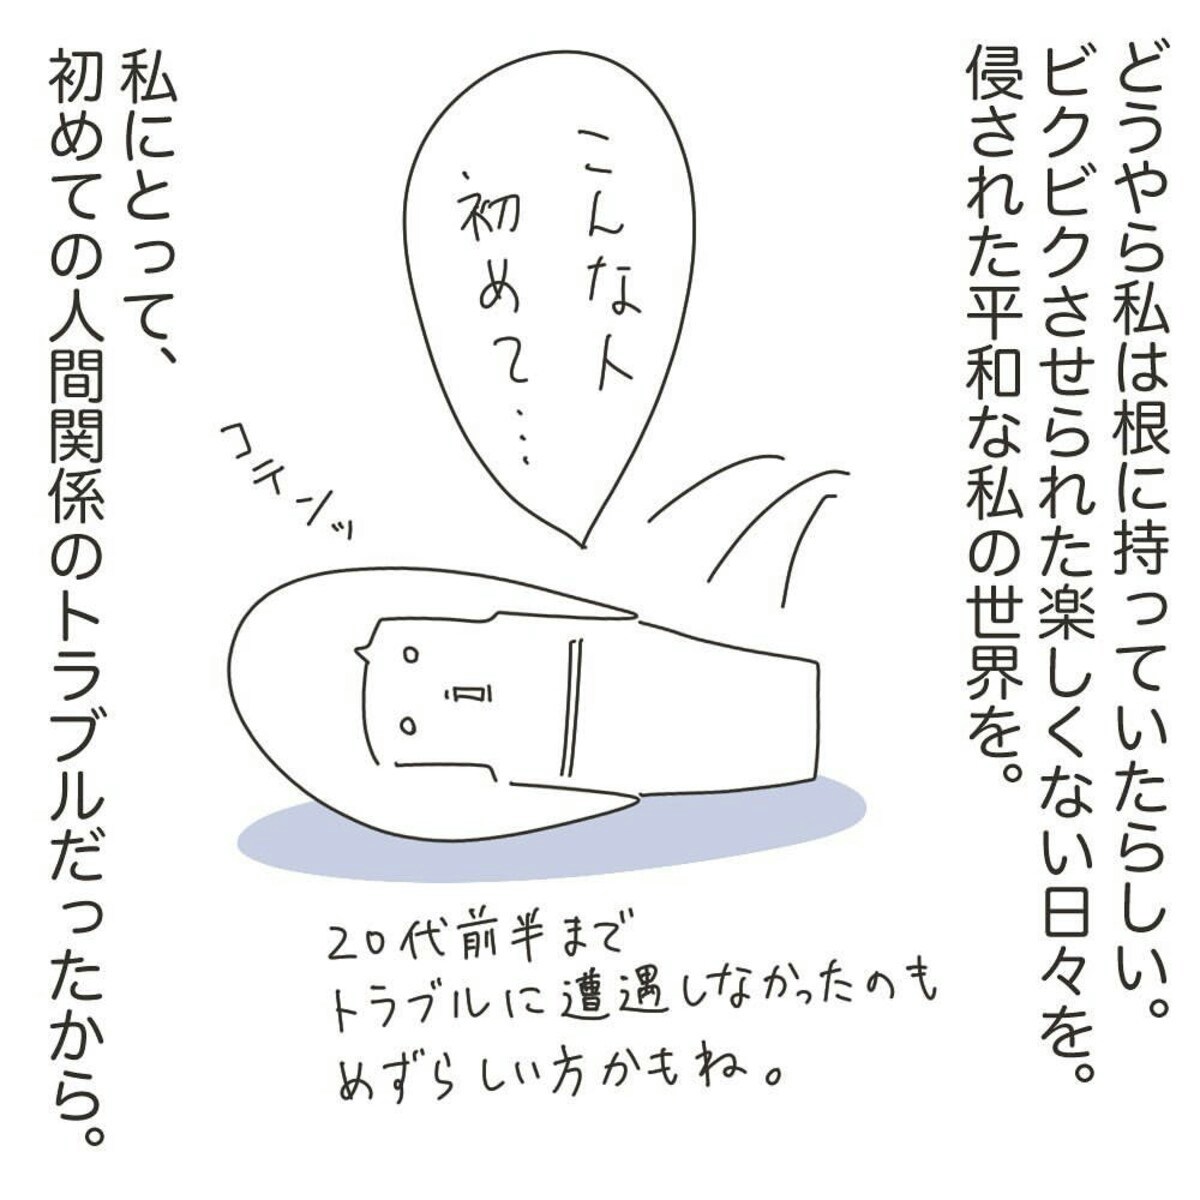 どうやら私は根に持っていたらしい。
ビクビクさせられた楽しくない日々を。
侵された平和な私の世界を。
こんな人
初めて…
コテンッ
私にとって、
初めての人間関係のトラブルだったから。
20代前半まで
トラブルに遭遇しなかったのも
めずらしい方かもね。